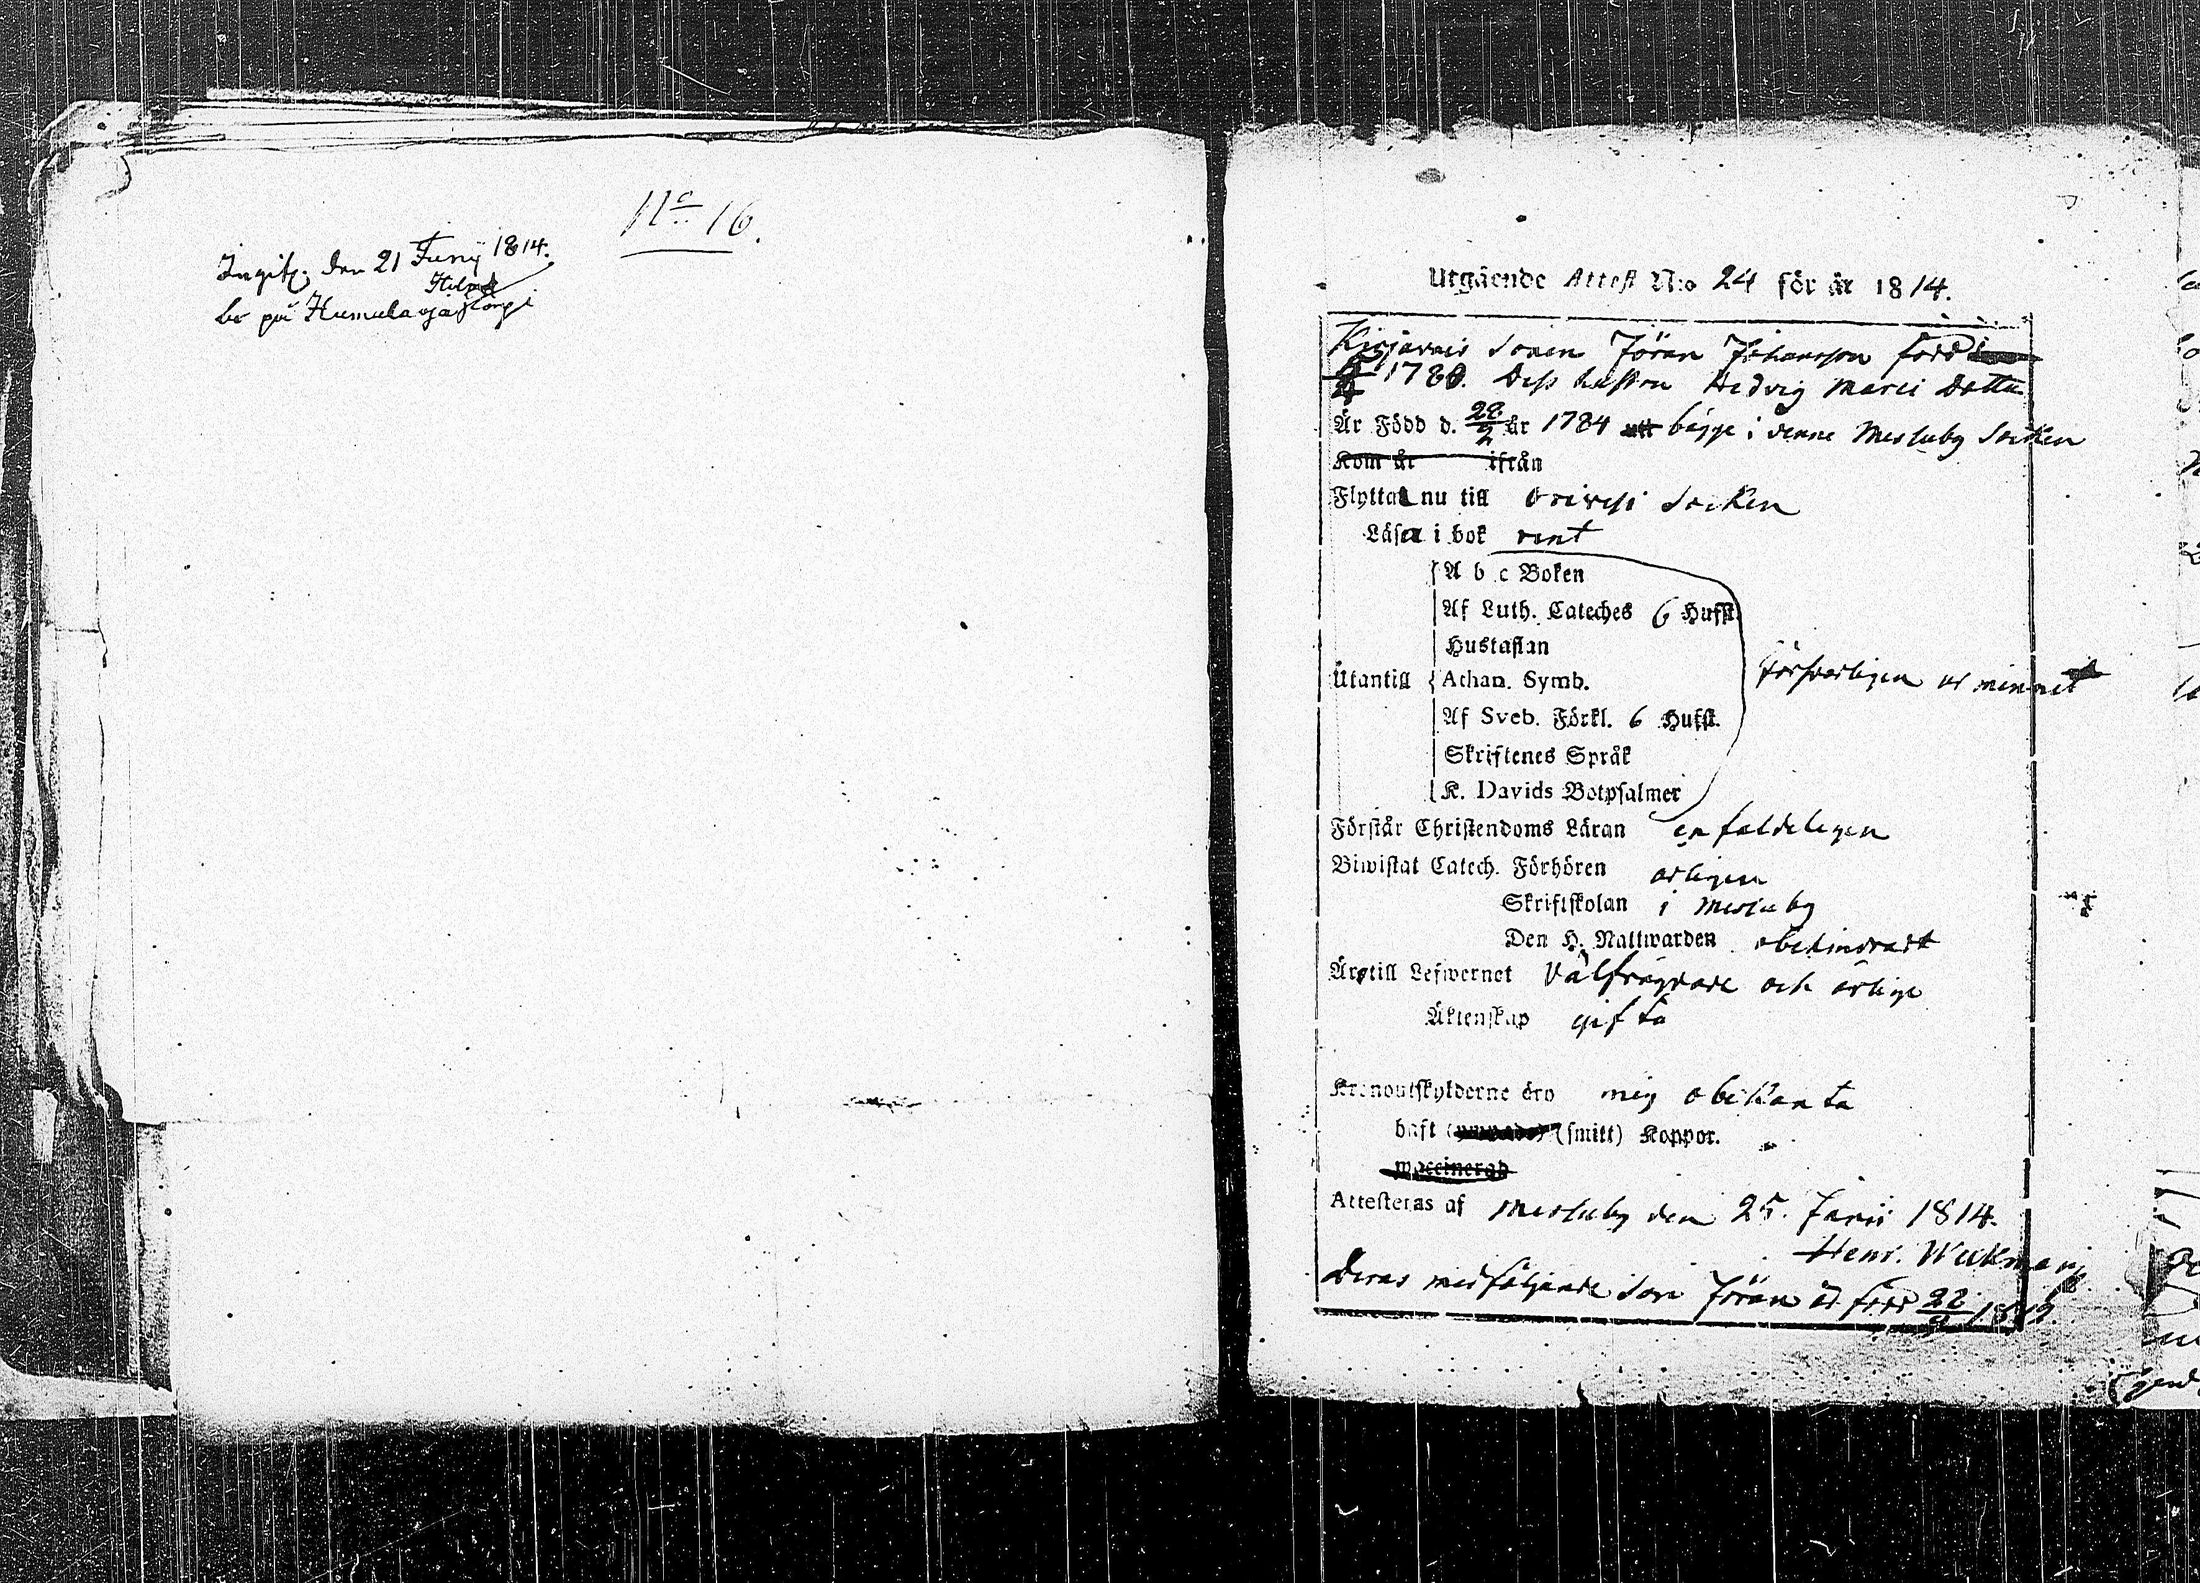 No 16.
Ingifv. den 21 Junij 1814.
bo på Humulaoja
Utgående Attest N:o 24 för år 1814.
Kirjavais Sonen Jöran Johansson född
1780. Dess hustru Hedvig Marci Dotter
Är Född d. 28/2 år 1784 bägge i denne Messuby Socken
Kom år ifrån
Flytta nu till Orivesi Socken
Läsa i bok rent
A b c Boken
Af Luth. Cateches 6 Hufst.
Hustaflan
Utantill Athan. Symb. försvarligen ur minnet
Af Sveb. Förkl. 6 Hufst.
Skriftenes Språk
K. Davids Botpsalmer
Förstår Christendoms Läran enfaldeligen
Biwistat Catech. Förhören årligen
Skriftskolan i Messuby
Den H. Nattwarden obehindradt
Äro till Lefwernet Välfrägdade och ärlige
Äktenskap gifta
Kronoutskylderne äro mig obekanta
haft (smitt) Koppor.
waccinerad
Attesteras af Messuby den 25. Junii 1814.
Henr. Weckman
Deras medföljande Son Jöran är född 22